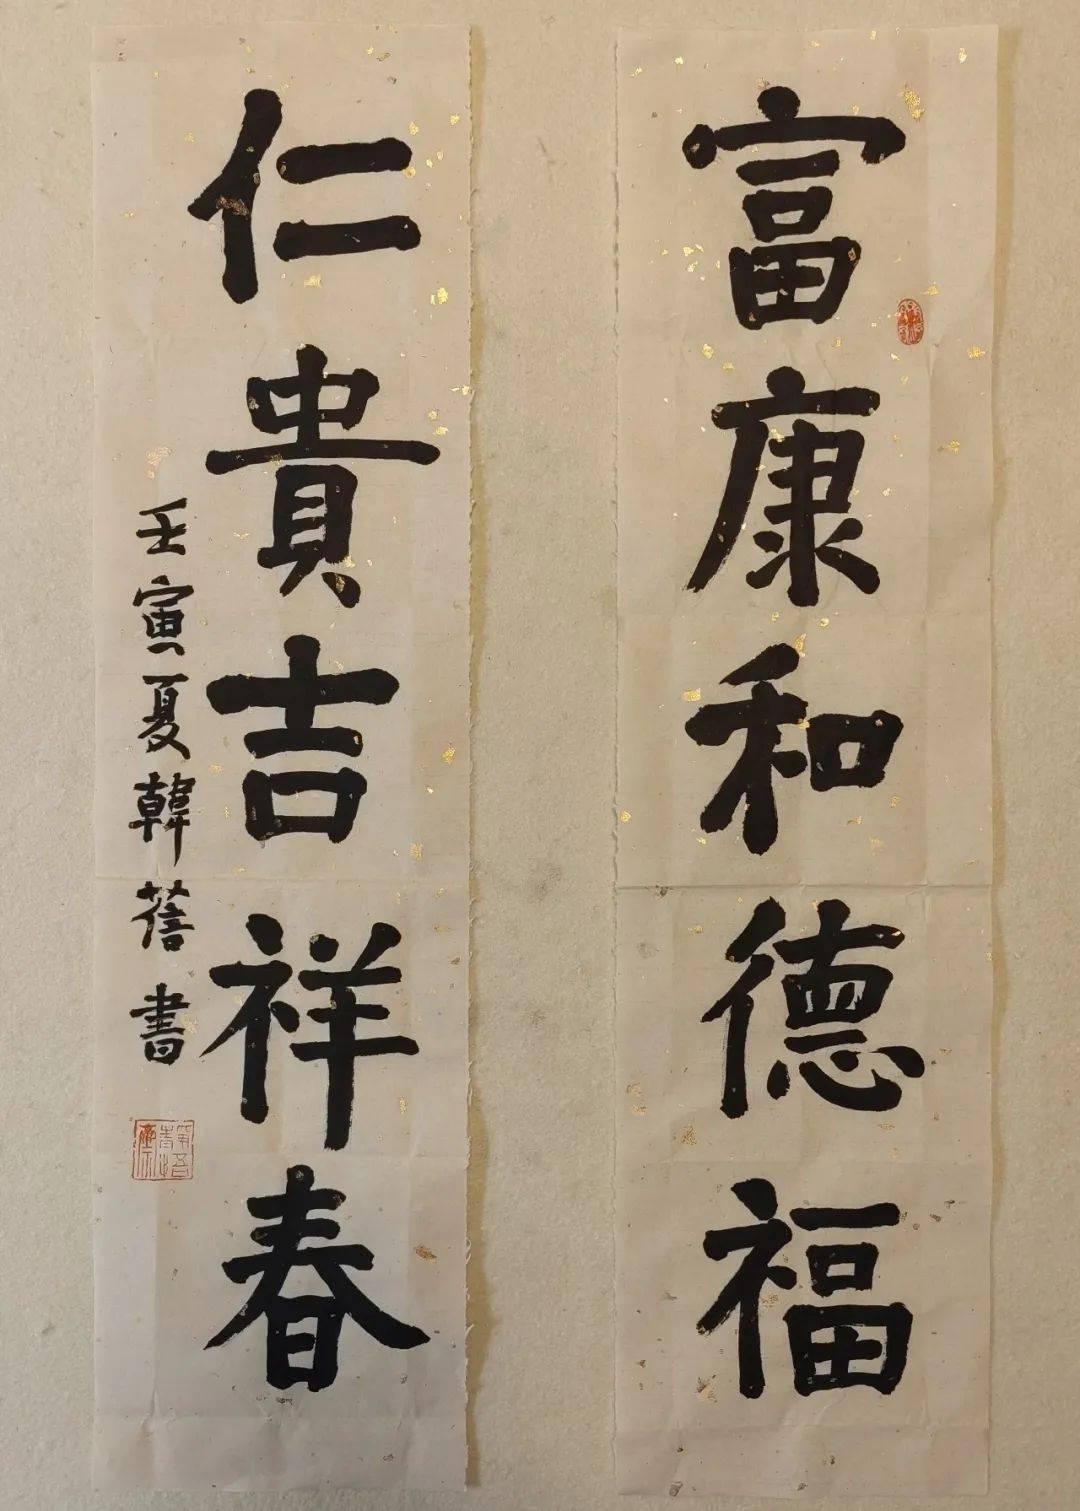 富康和德福
仁貴吉祥春
壬寅夏韓蓓書